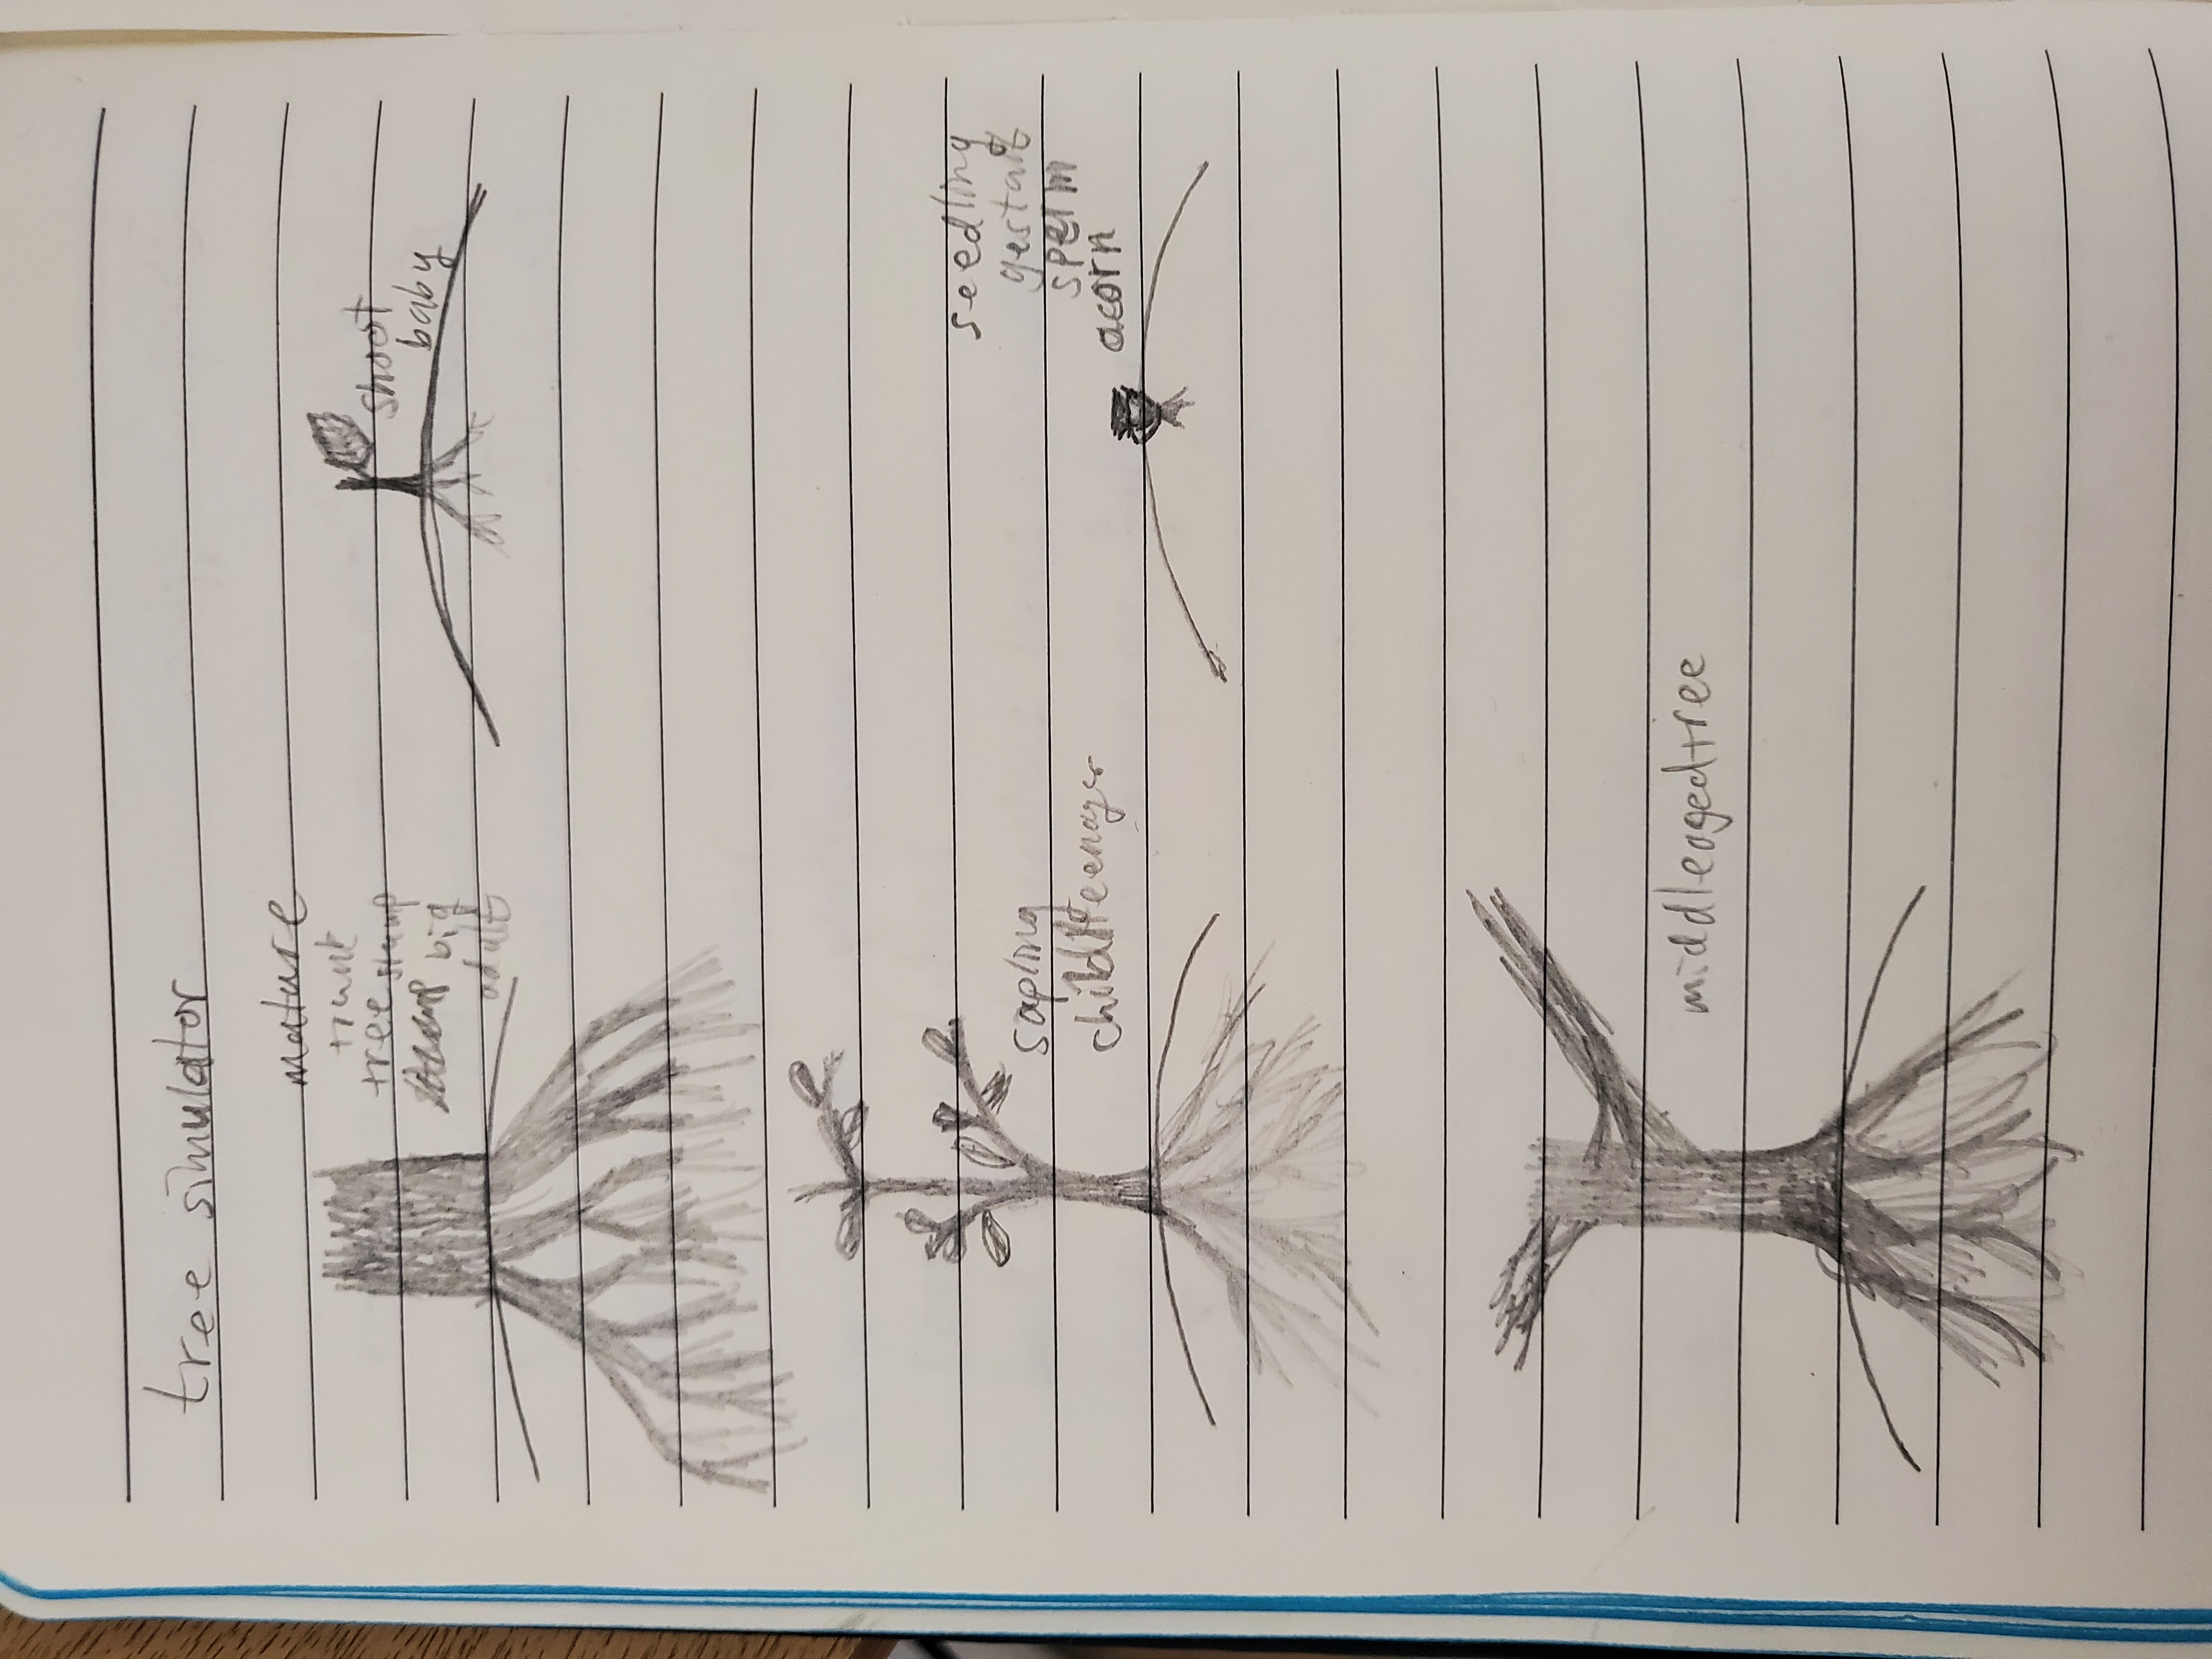 tree simulator
mature
trunk
tree stump
big
adult
shoot
baby
sapling
child/teenager
seedling
gestalt
sperm
acorn
middleagedtree